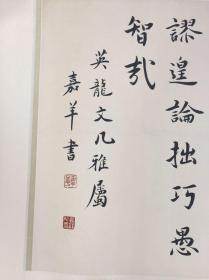 謬遑論拙巧愚
智哉
英龍文几雅屬
嘉羊書